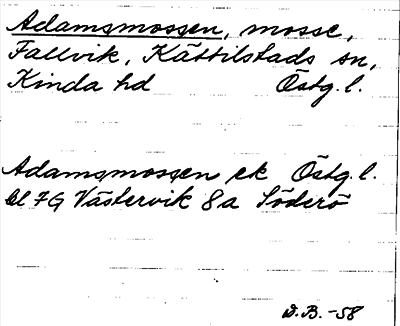 Adamsmossen, mosse,
Fallvik, Kättilstads sn,
Kinda hd Östg. l.
Adamsmossen ek Östg. l.
bl 7G Västervik 8a Söderö
D.B. -58